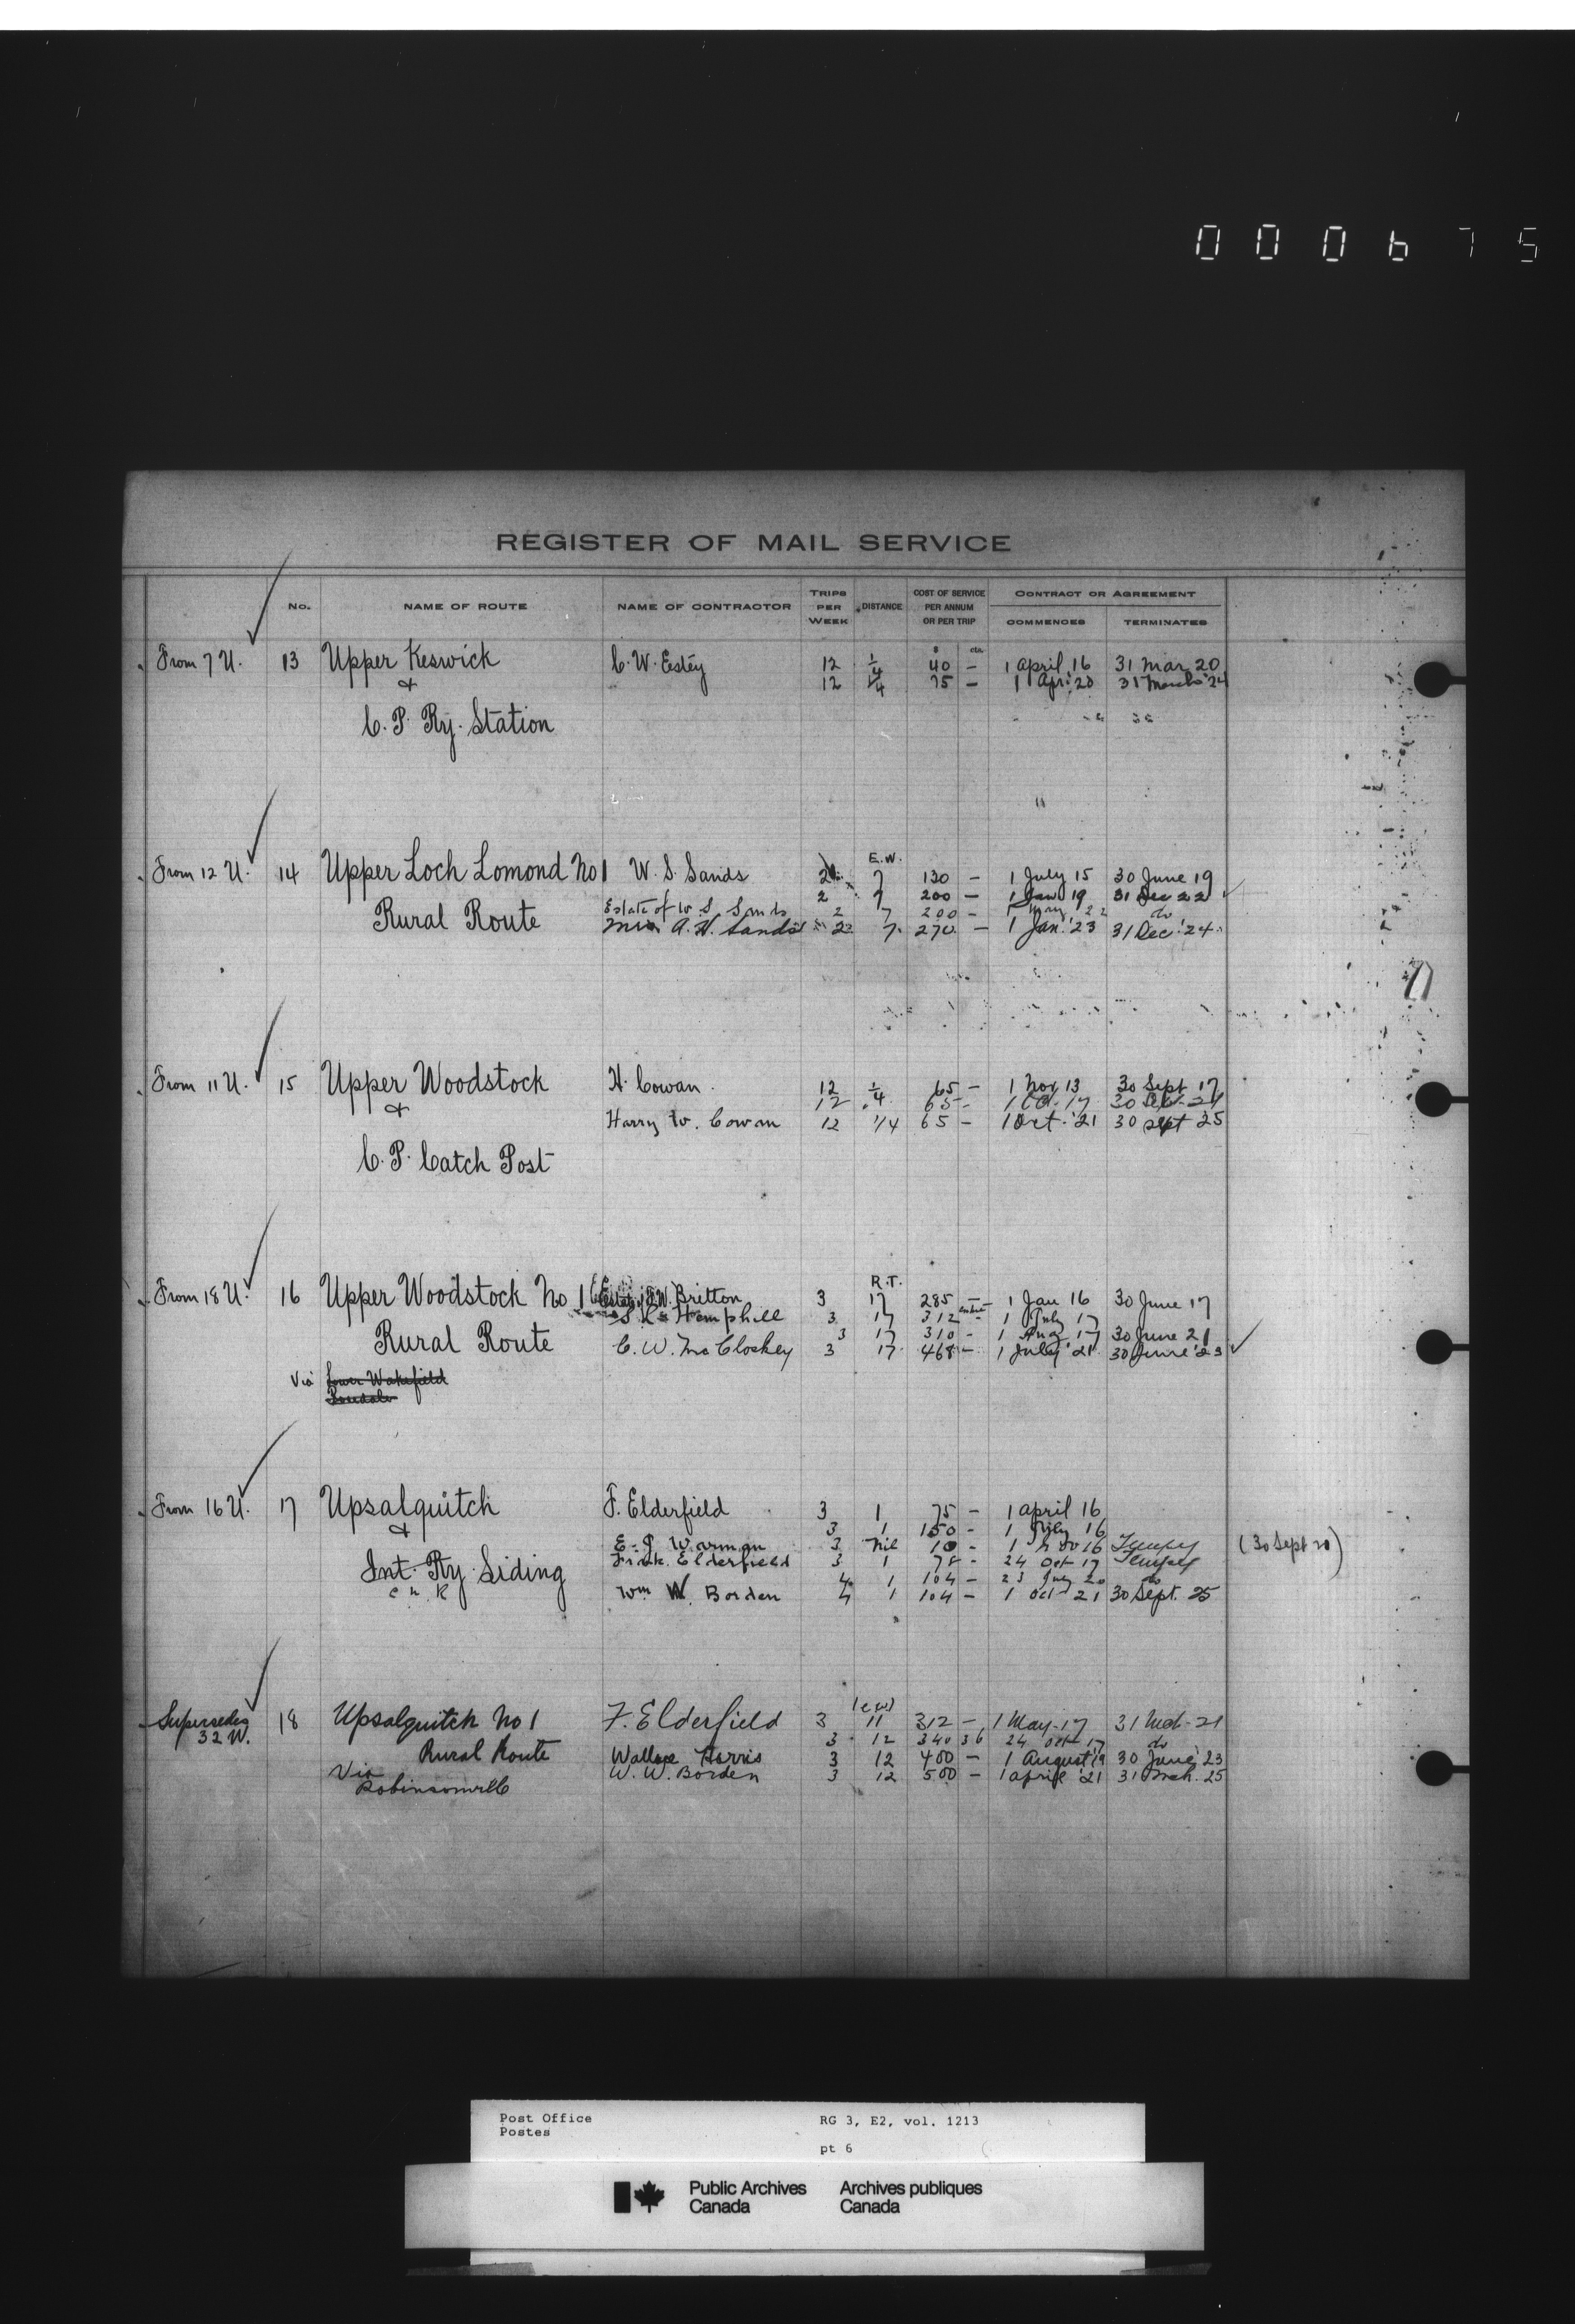 000675
REGISTER OF MAIL SERVICE
No. NAME OF ROUTE NAME OF CONTRACTOR TRIPS PER WEEK DISTANCE COST OF SERVICE PER ANNUM OR PER TRIP CONTRACT OR AGREEMENT
COMMENCES TERMINATES
$ cts.
From 7 U. 13 Upper Keswick C. W. Estey 12 1/4 40 – 1 April 16 31 Mar 20
& 12 1/4 75 – 1 Apr. '20 31 March '24
C. P. Ry. Station
E.W.
From 12 U. 14 Upper Loch Lomond No 1 W. S. Sands 2 7 130 – 1 July 15 30 June 19
2 7 200 – 1 Jan 19 31 Dec 22
Rural Route Estate of W. S. Sands 2 7 200 – 1 22 do
A. H. Sands 2 7 270 – 1 Jan. '23 31 Dec '24
From 11 U. 15 Upper Woodstock H. Cowan 12 1/4 65 – 1 Nov 13 30 Sept 17
& 12 1/4 65 – 1 Oct. 17 30 Sept – 21
Harry W. Cowan 12 1/4 65 – 1 Oct. '21 30 Sept 25
C. P. Catch Post
R.T.
From 18 U. 16 Upper Woodstock No 1 Britton 3 17 285 – 1 Jan 16 30 June 17
Hemphill 3 17 312 1 July 17
Rural Route 3 17 310 – 1 Aug 17 30 June 21
C. W. McCloskey 3 17 468 – 1 July '21 30 June '23
Via Lower Wakefield
From 16 U. 17 Upsalquitch F. Elderfield 3 1 75 – 1 April 16
& 3 1 150 – 1 July 16
E. J. Warman 3 Nil 10 – 1 Nov 16 Tempy (30 Sept 20)
Int. Ry. Siding Frank Elderfield 3 1 78 – 24 Oct 17 Tempy
C N R 4 1 104 – 23 July 20 do
Wm W. Borden 4 1 104 – 1 Oct – 21 30 Sept. 25
(e w)
Superseding 18 Upsalquitch No 1 F. Elderfield 3 11 312 – 1 May – 17 31 Mch – 21
32 W. 3 12 340 36 24 Oct 17 do
Rural Route Wallace Harris 3 12 400 – 1 August '19 30 June '23
Via W. W. Borden 3 12 500 – 1 April '21 31 Mch. 25
Robinsonville
Post Office RG 3, E2, vol. 1213
Postes
pt 6
Public Archives Archives publiques
Canada Canada